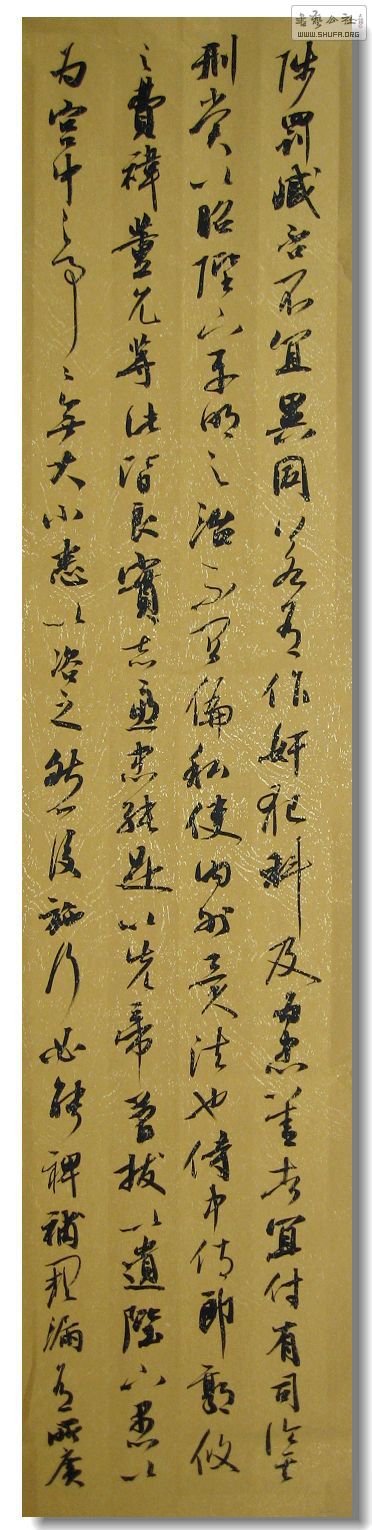 書藝公社
WWW.SHUFA.ORG
陟罰臧否不宜異同若有作奸犯科及為忠善者宜付有司論其
刑賞以昭陛下平明之治不宜偏私使内外異法也侍中侍郎郭攸
之費禕董允等此皆良實志慮忠純是以先帝簡拔以遺陛下愚以
為宮中之事〻無大小悉以咨之然後施行必能裨補闕漏有所廣